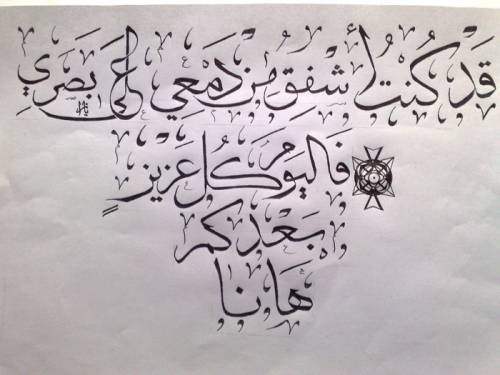 قَدْ كُنتُ أُشْفِقُ مِنْ دَمْعِي عَلَى بَصَرِي
فَاليَوْمَ كُلُّ عَزِيزٍ
بَعْدَكُمْ
هَانَا